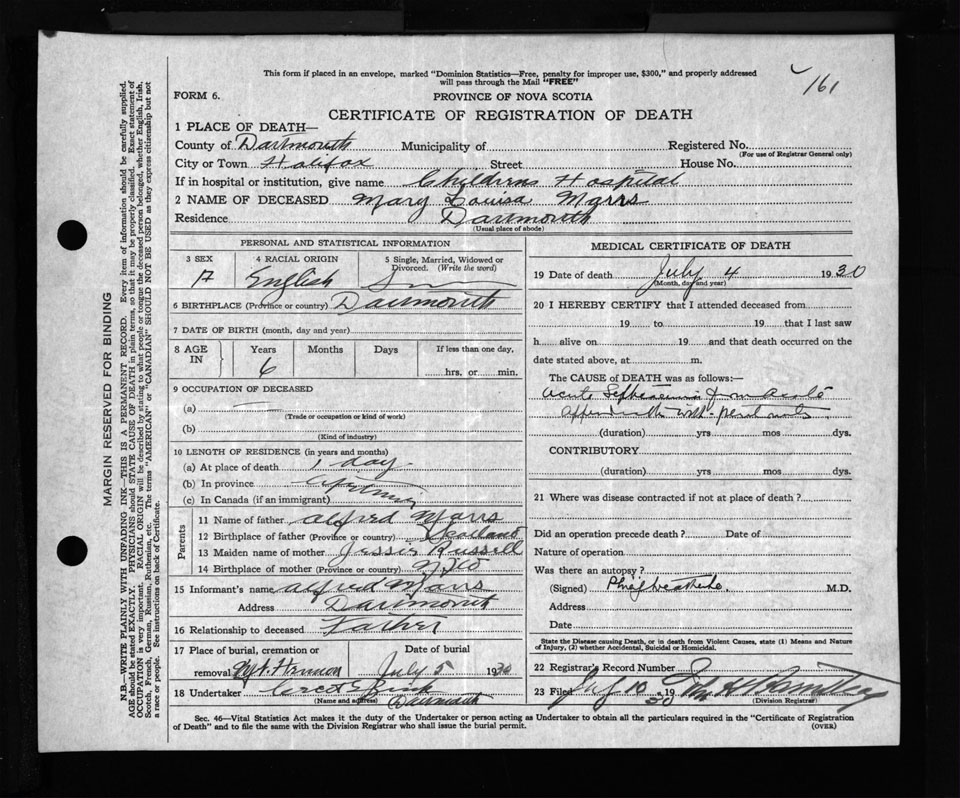 This form if placed in an envelope, marked "Dominion Statistics—Free, penalty for improper use, $300," and properly addressed
will pass through the Mail "FREE"
161
FORM 6.
PROVINCE OF NOVA SCOTIA
CERTIFICATE OF REGISTRATION OF DEATH
1 PLACE OF DEATH—
County of Dartmouth Municipality of Registered No.
(For use of Registrar General only)
City or Town Halifax Street House No.
If in hospital or institution, give name Childrens Hospital
2 NAME OF DECEASED Mary Louisa Marrs
Residence Dartmouth
(Usual place of abode)
PERSONAL AND STATISTICAL INFORMATION
3 SEX 4 RACIAL ORIGIN 5 Single, Married, Widowed or
Divorced. (Write the word)
English S
6 BIRTHPLACE (Province or country) Dartmouth
7 DATE OF BIRTH (month, day and year)
8 AGE IN Years Months Days If less than one day,
6 hrs. or min.
9 OCCUPATION OF DECEASED
(a)
(Trade or occupation or kind of work)
(b)
(Kind of industry)
10 LENGTH OF RESIDENCE (in years and months)
(a) At place of death 1 day
(b) In province Lifetime
(c) In Canada (if an immigrant)
Parents
11 Name of father Alfred Marrs
12 Birthplace of father (Province or country) Scotland
13 Maiden name of mother Jessie Russell
14 Birthplace of mother (Province or country) Nfld
15 Informant's name Alfred Marrs
Address Dartmouth
16 Relationship to deceased Father
17 Place of burial, cremation or Date of burial
removal Mt. Hermon July 5 1930
18 Undertaker
(Name and address) Dartmouth
MEDICAL CERTIFICATE OF DEATH
19 Date of death July 4 1930
(Month, day and year)
20 I HEREBY CERTIFY that I attended deceased from
19 to 19 that I last saw
h alive on 19 and that death occurred on the
date stated above, at m.
The CAUSE OF DEATH was as follows:—
acute Septicaemia from acute
appendicitis with peritonitis
(duration) yrs mos dys.
CONTRIBUTORY
(duration) yrs mos dys.
21 Where was disease contracted if not at place of death?
Did an operation precede death? Date of
Nature of operation
Was there an autopsy?
(Signed) M.D.
Address
Date
State the Disease causing Death, or in death from Violent Causes, state (1) Means and Nature
of Injury, (2) whether Accidental, Suicidal or Homicidal.
22 Registrar's Record Number
23 Filed July 10 1930
(Division Registrar)
Sec. 46—Vital Statistics Act makes it the duty of the Undertaker or person acting as Undertaker to obtain all the particulars required in the "Certificate of Registration
of Death" and to file the same with the Division Registrar who shall issue the burial permit.
(OVER)
MARGIN RESERVED FOR BINDING
N.B.—WRITE PLAINLY WITH UNFADING INK—THIS IS A PERMANENT RECORD. Every item of information should be carefully supplied.
AGE should be stated EXACTLY. PHYSICIANS should STATE CAUSE OF DEATH in plain terms, so that it may be properly classified. Exact statement of
OCCUPATION is very important. RACIAL ORIGIN will be described by stating to what people or tongue the deceased person belonged, whether English, Irish,
Scotch, French, German, Russian, Ruthenian, etc. The terms "AMERICAN" or "CANADIAN" SHOULD NOT BE USED as they express citizenship but not
a race or people. See instructions on back of Certificate.